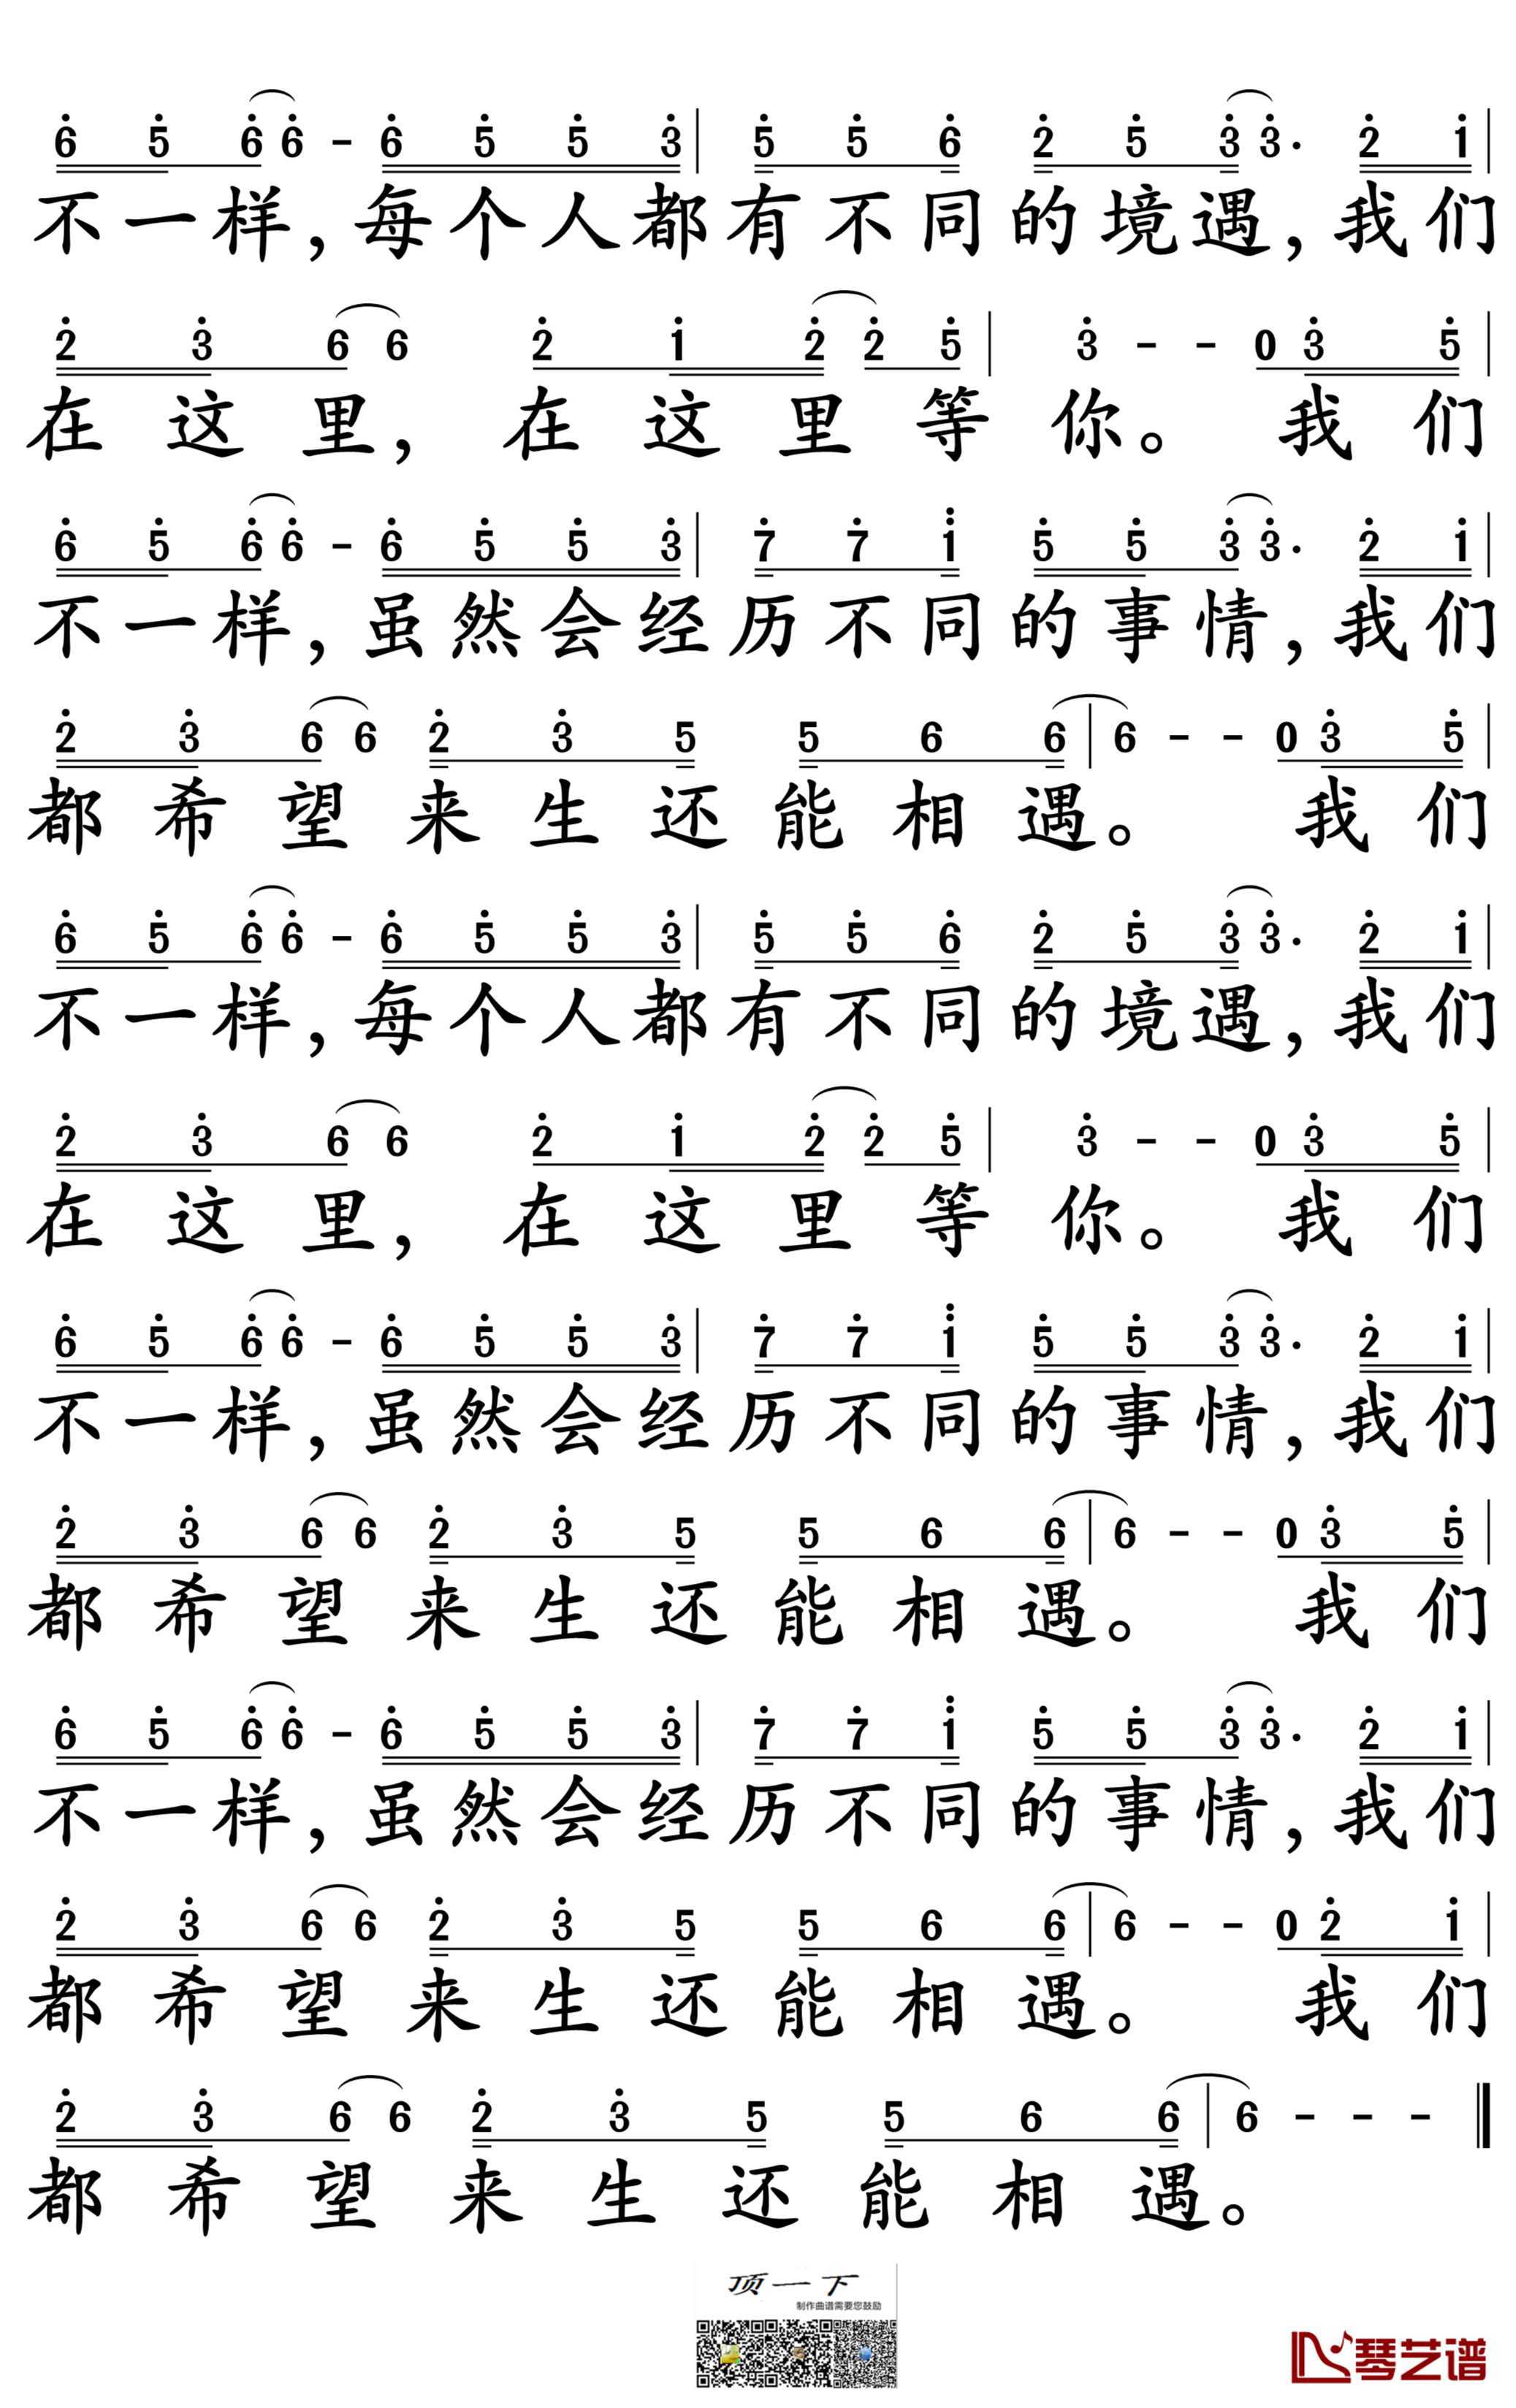 6 5 6 6 - 6 5 5 3 | 5 5 6 2 5 3 3· 2 1 |
不一样，每个人都有不同的境遇，我们
2 3 6 6 2 1 2 2 5 | 3 - - 0 3 5 |
在这里，在这里等你。我们
6 5 6 6 - 6 5 5 3 | 7 7 1 5 5 3 3· 2 1 |
不一样，虽然会经历不同的事情，我们
2 3 6 6 2 3 5 5 6 6 | 6 - - 0 3 5 |
都希望来生还能相遇。我们
6 5 6 6 - 6 5 5 3 | 5 5 6 2 5 3 3· 2 1 |
不一样，每个人都有不同的境遇，我们
2 3 6 6 2 1 2 2 5 | 3 - - 0 3 5 |
在这里，在这里等你。我们
6 5 6 6 - 6 5 5 3 | 7 7 1 5 5 3 3· 2 1 |
不一样，虽然会经历不同的事情，我们
2 3 6 6 2 3 5 5 6 6 | 6 - - 0 3 5 |
都希望来生还能相遇。我们
6 5 6 6 - 6 5 5 3 | 7 7 1 5 5 3 3· 2 1 |
不一样，虽然会经历不同的事情，我们
2 3 6 6 2 3 5 5 6 6 | 6 - - 0 2 1 |
都希望来生还能相遇。我们
2 3 6 6 2 3 5 5 6 6 | 6 - - - ‖
都希望来生还能相遇。
顶一下
制作曲谱需要您鼓励
琴艺谱